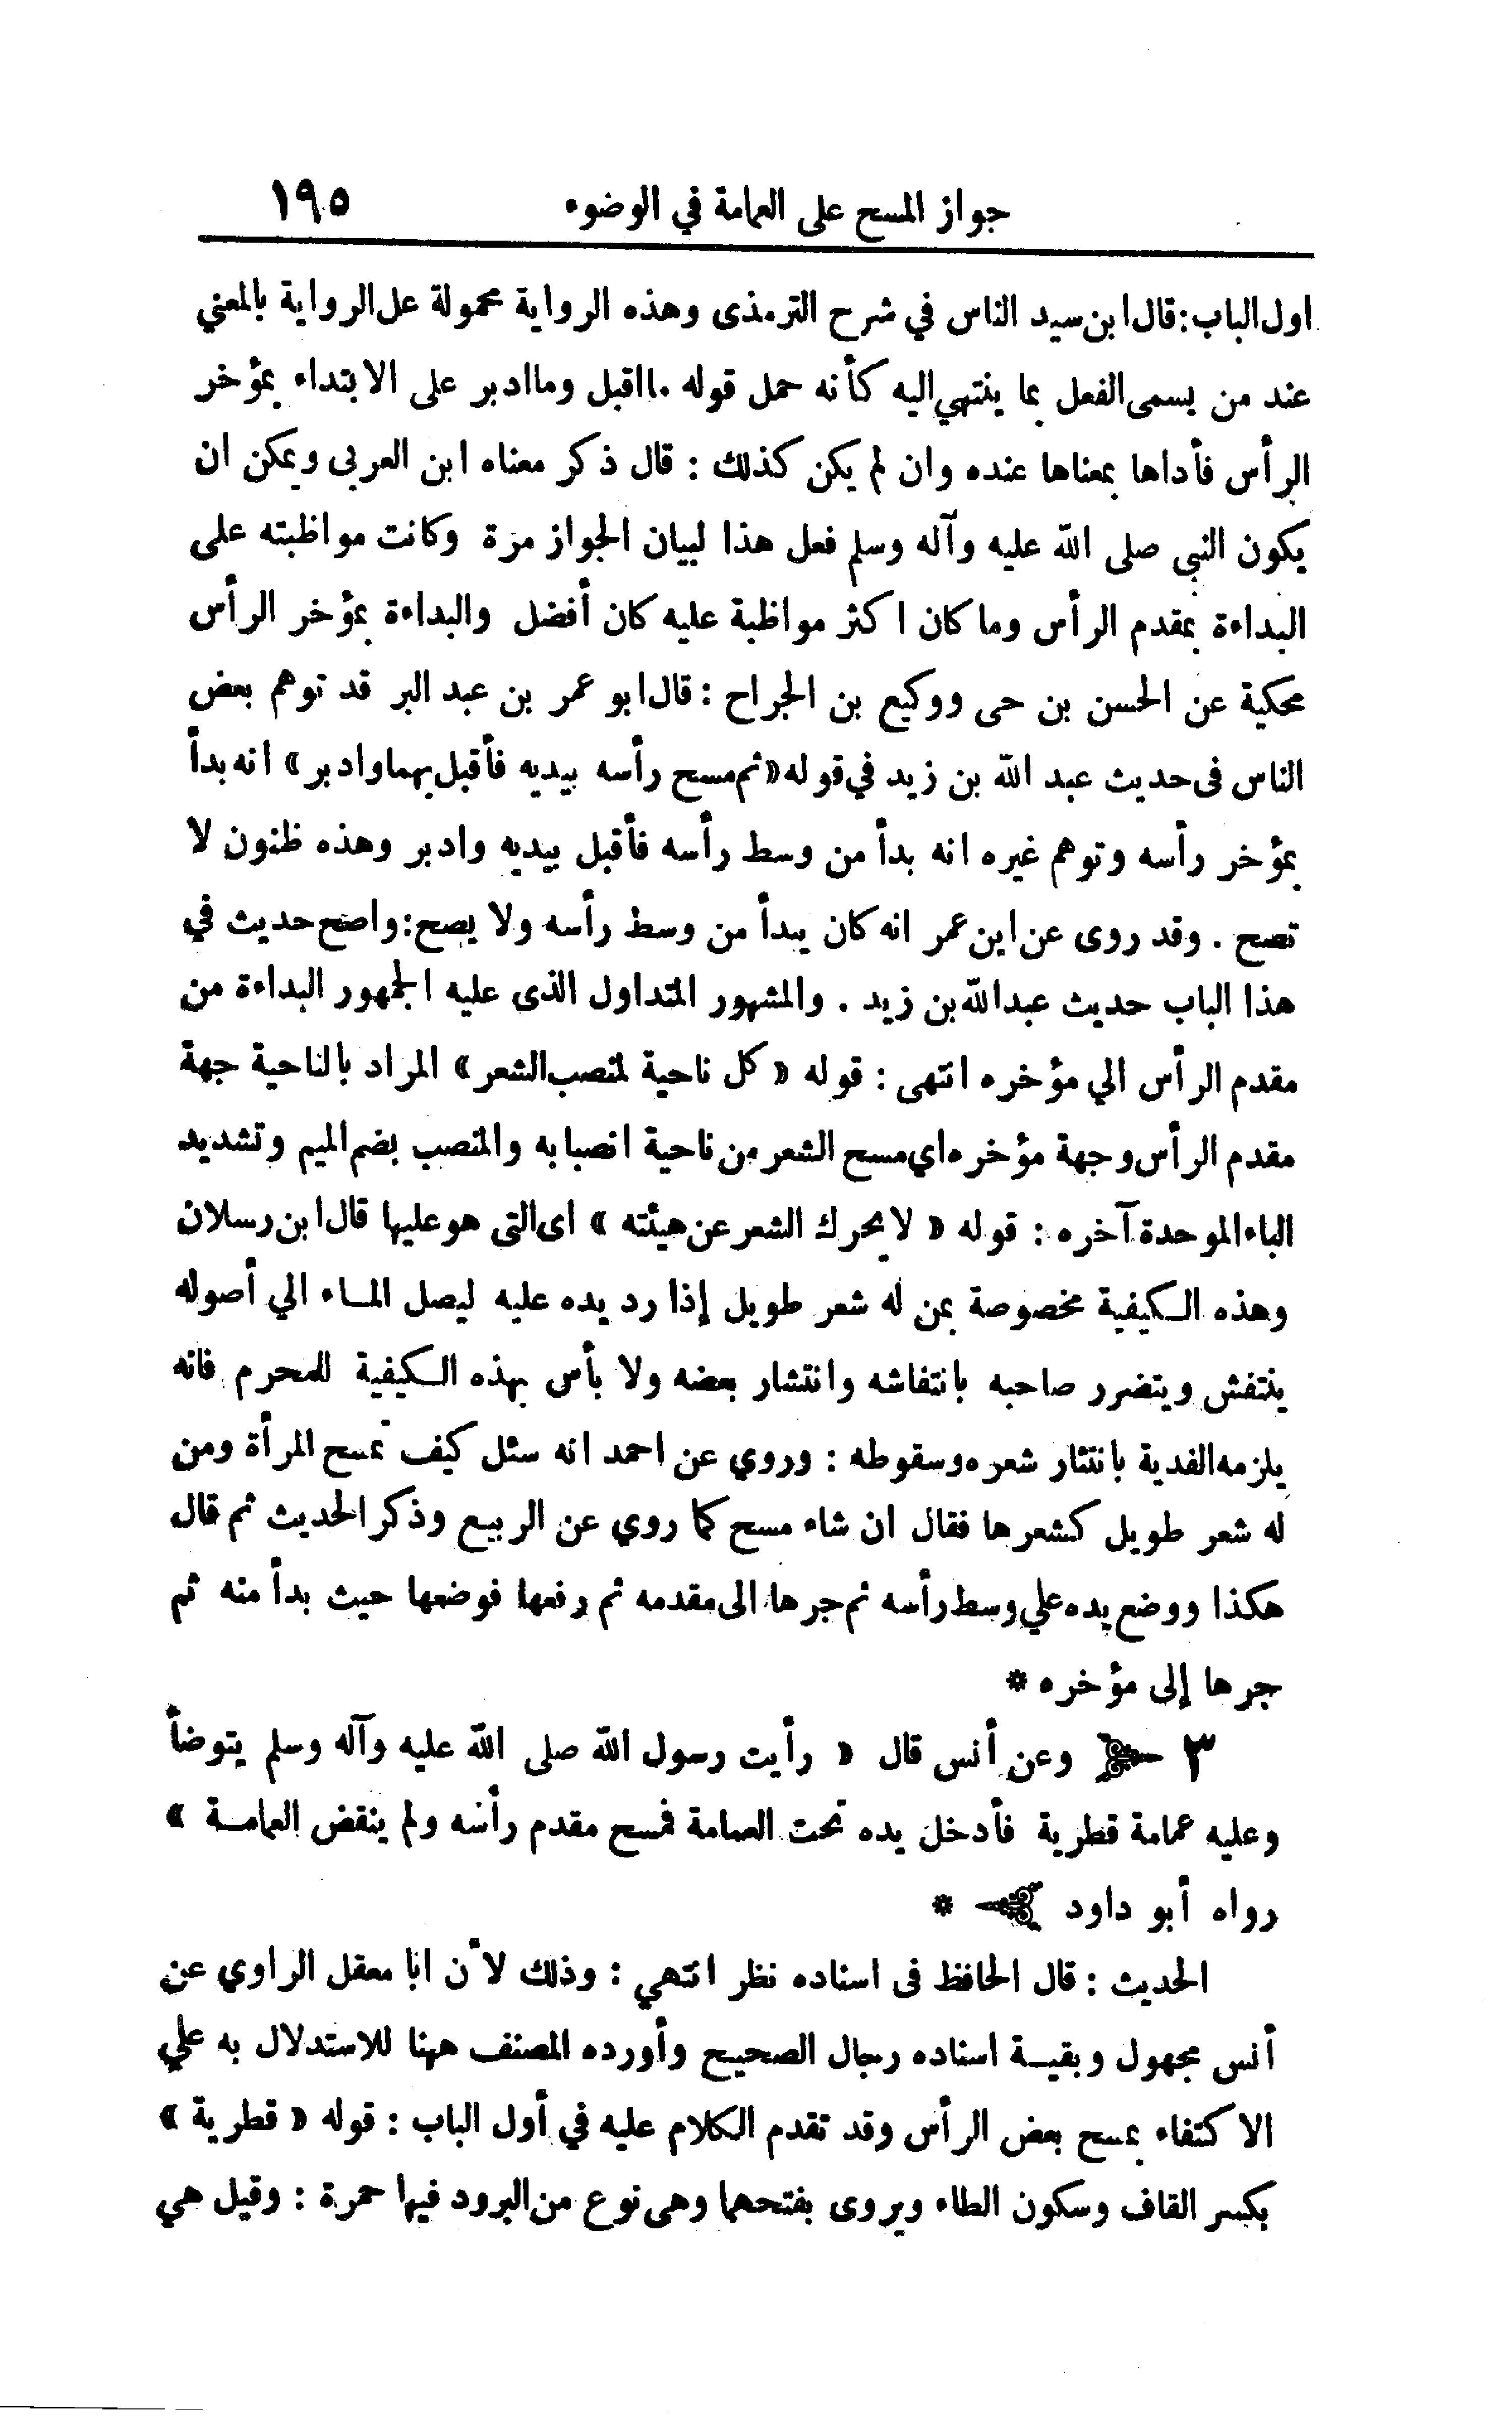 جواز المسح على العمامة في الوضوء ١٩٥
اول الباب: قال ابن سيد الناس في شرح الترمذى وهذه الرواية محمولة عل الرواية بالمعني
عند من يسمى الفعل بما ينتهي اليه كأنه حمل قوله ما اقبل وما ادبر على الابتداء بمؤخر
الرأس فأداها بمعناها عنده وان لم يكن كذلك : قال ذكر معناه ابن العربى ويمكن ان
يكون النبى صلى الله عليه وآله وسلم فعل هذا لبيان الجواز مرة وكانت مواظبته على
البداءة بمقدم الرأس وما كان اكثر مواظبة عليه كان أفضل والبداءة بمؤخر الرأس
محكية عن الحسن بن حى ووكيع بن الجراح : قال ابو عمر بن عبد البر قد توهم بعض
الناس فى حديث عبد الله بن زيد في قوله «ثم مسح رأسه بيديه فأقبل بهما وادبر» انه بدأ
بمؤخر رأسه وتوهم غيره انه بدأ من وسط رأسه فأقبل بيديه وادبر وهذه ظنون لا
تصح . وقد روى عن ابن عمر انه كان يبدأ من وسط رأسه ولا يصح: واصح حديث في
هذا الباب حديث عبدالله بن زيد . والمشهور المتداول الذى عليه الجمهور البداءة من
مقدم الرأس الي مؤخره انتهى : قوله « كل ناحية لمنصب الشعر» المراد بالناحية جهة
مقدم الرأس وجهة مؤخره اي مسح الشعر من ناحية انصبابه والمنصب بضم الميم وتشديد
الباء الموحدة آخره : قوله « لا يحرك الشعر عن هيئته » اى التى هو عليها قال ابن رسلان
وهذه الكيفية مخصوصة بمن له شعر طويل إذا رد يده عليه ليصل الماء الي أصوله
ينتفش ويتضرر صاحبه بانتفاشه وانتشار بعضه ولا بأس بهذه الكيفية للمحرم فانه
يلزمه الفدية بانتثار شعره وسقوطه : وروي عن احمد انه سئل كيف تمسح المرأة ومن
له شعر طويل كشعرها فقال ان شاء مسح كما روي عن الربيع وذكر الحديث ثم قال
هكذا ووضع يده علي وسط رأسه ثم جرها الى مقدمه ثم رفعها فوضعها حيث بدأ منه ثم
جرها إلى مؤخره *
٣ وعن أنس قال « رأيت رسول الله صلى الله عليه وآله وسلم يتوضأ
وعليه عمامة قطرية فأدخل يده تحت العمامة فمسح مقدم رأسه ولم ينقض العمامة »
رواه أبو داود *
الحديث : قال الحافظ فى اسناده نظر انتهي : وذلك لأن ابا معقل الراوي عن
أنس مجهول وبقية اسناده رجال الصحيح وأورده المصنف ههنا للاستدلال به علي
الاكتفاء بمسح بعض الرأس وقد تقدم الكلام عليه في أول الباب : قوله « قطرية »
بكسر القاف وسكون الطاء ويروى بفتحهما وهى نوع من البرود فيها حمرة : وقيل هي